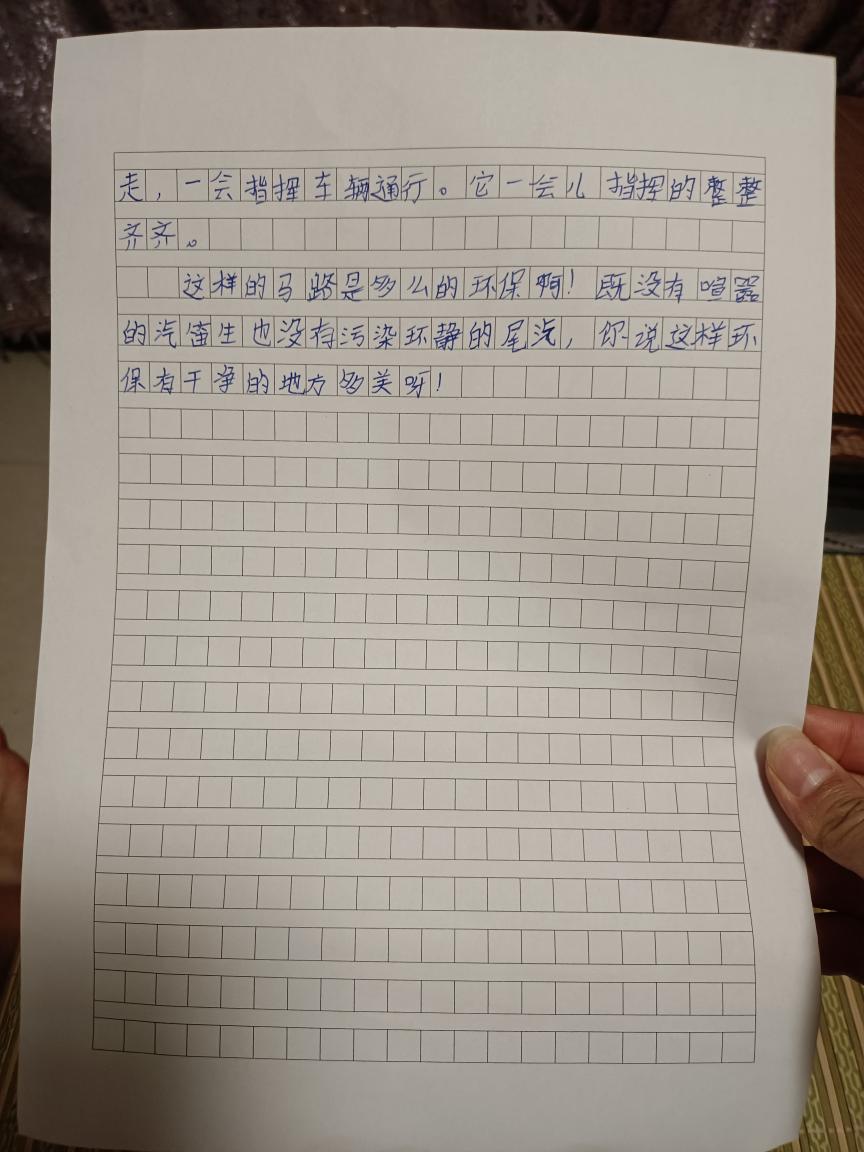 走，一会指挥车辆通行。它一会儿指挥的整整
齐齐。
这样的马路是多么的环保啊！既没有喧嚣
的汽笛生也没有污染环静的尾汽，你说这样环
保有干净的地方多美呀！